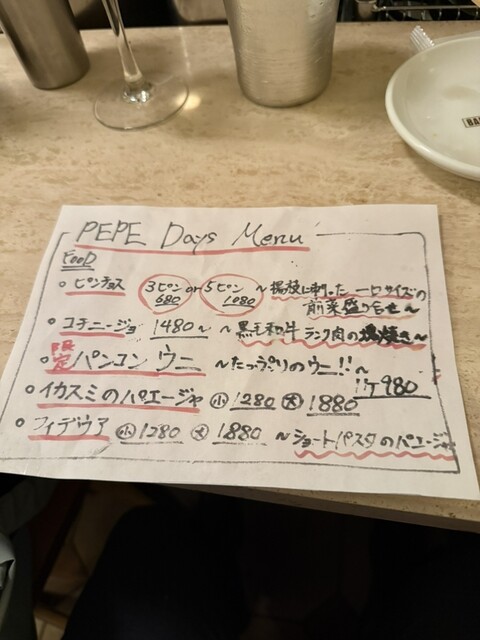 PEPE Days Menu
FOOD
○ ピンチョス 3ピン or 5ピン ～楊枝に刺した一口サイズの
680 1080 前菜盛り合せ～
○ コチニージョ 1480～ ～黒毛和牛 ランク肉の焼き～
限定
○ パンコン ウニ ～たっぷりのウニ!!～
1ケ980
○ イカスミのパエージャ 小 1280 大 1880
○ フィデウア 小 1280 大 1880 ～ショートパスタのパエージャ
BA